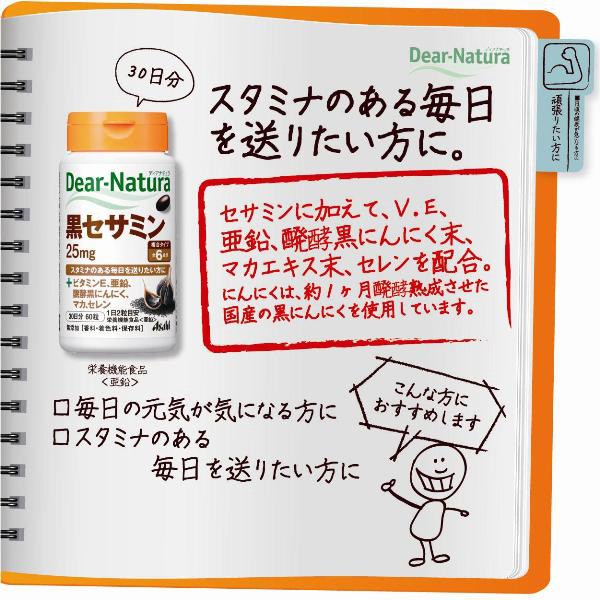 ディアナチュラ
Dear-Natura
30日分
スタミナのある毎日
を送りたい方に。
頑張りたい方に
ディアナチュラ
Dear-Natura
黒セサミン
25mg
複合タイプ
全6成分
スタミナのある毎日を送りたい方に
+ビタミンE、亜鉛、
醗酵黒にんにく、
マカ、セレン
30日分 60粒
1日2粒目安
栄養機能食品〈亜鉛〉
無添加[香料・着色料・保存料]
Asahi
栄養機能食品
〈亜鉛〉
セサミンに加えて、V.E、
亜鉛、醗酵黒にんにく末、
マカエキス末、セレンを配合。
にんにくは、約1ヶ月醗酵熟成させた
国産の黒にんにくを使用しています。
こんな方に
おすすめします
□毎日の元気が気になる方に
□スタミナのある
毎日を送りたい方に